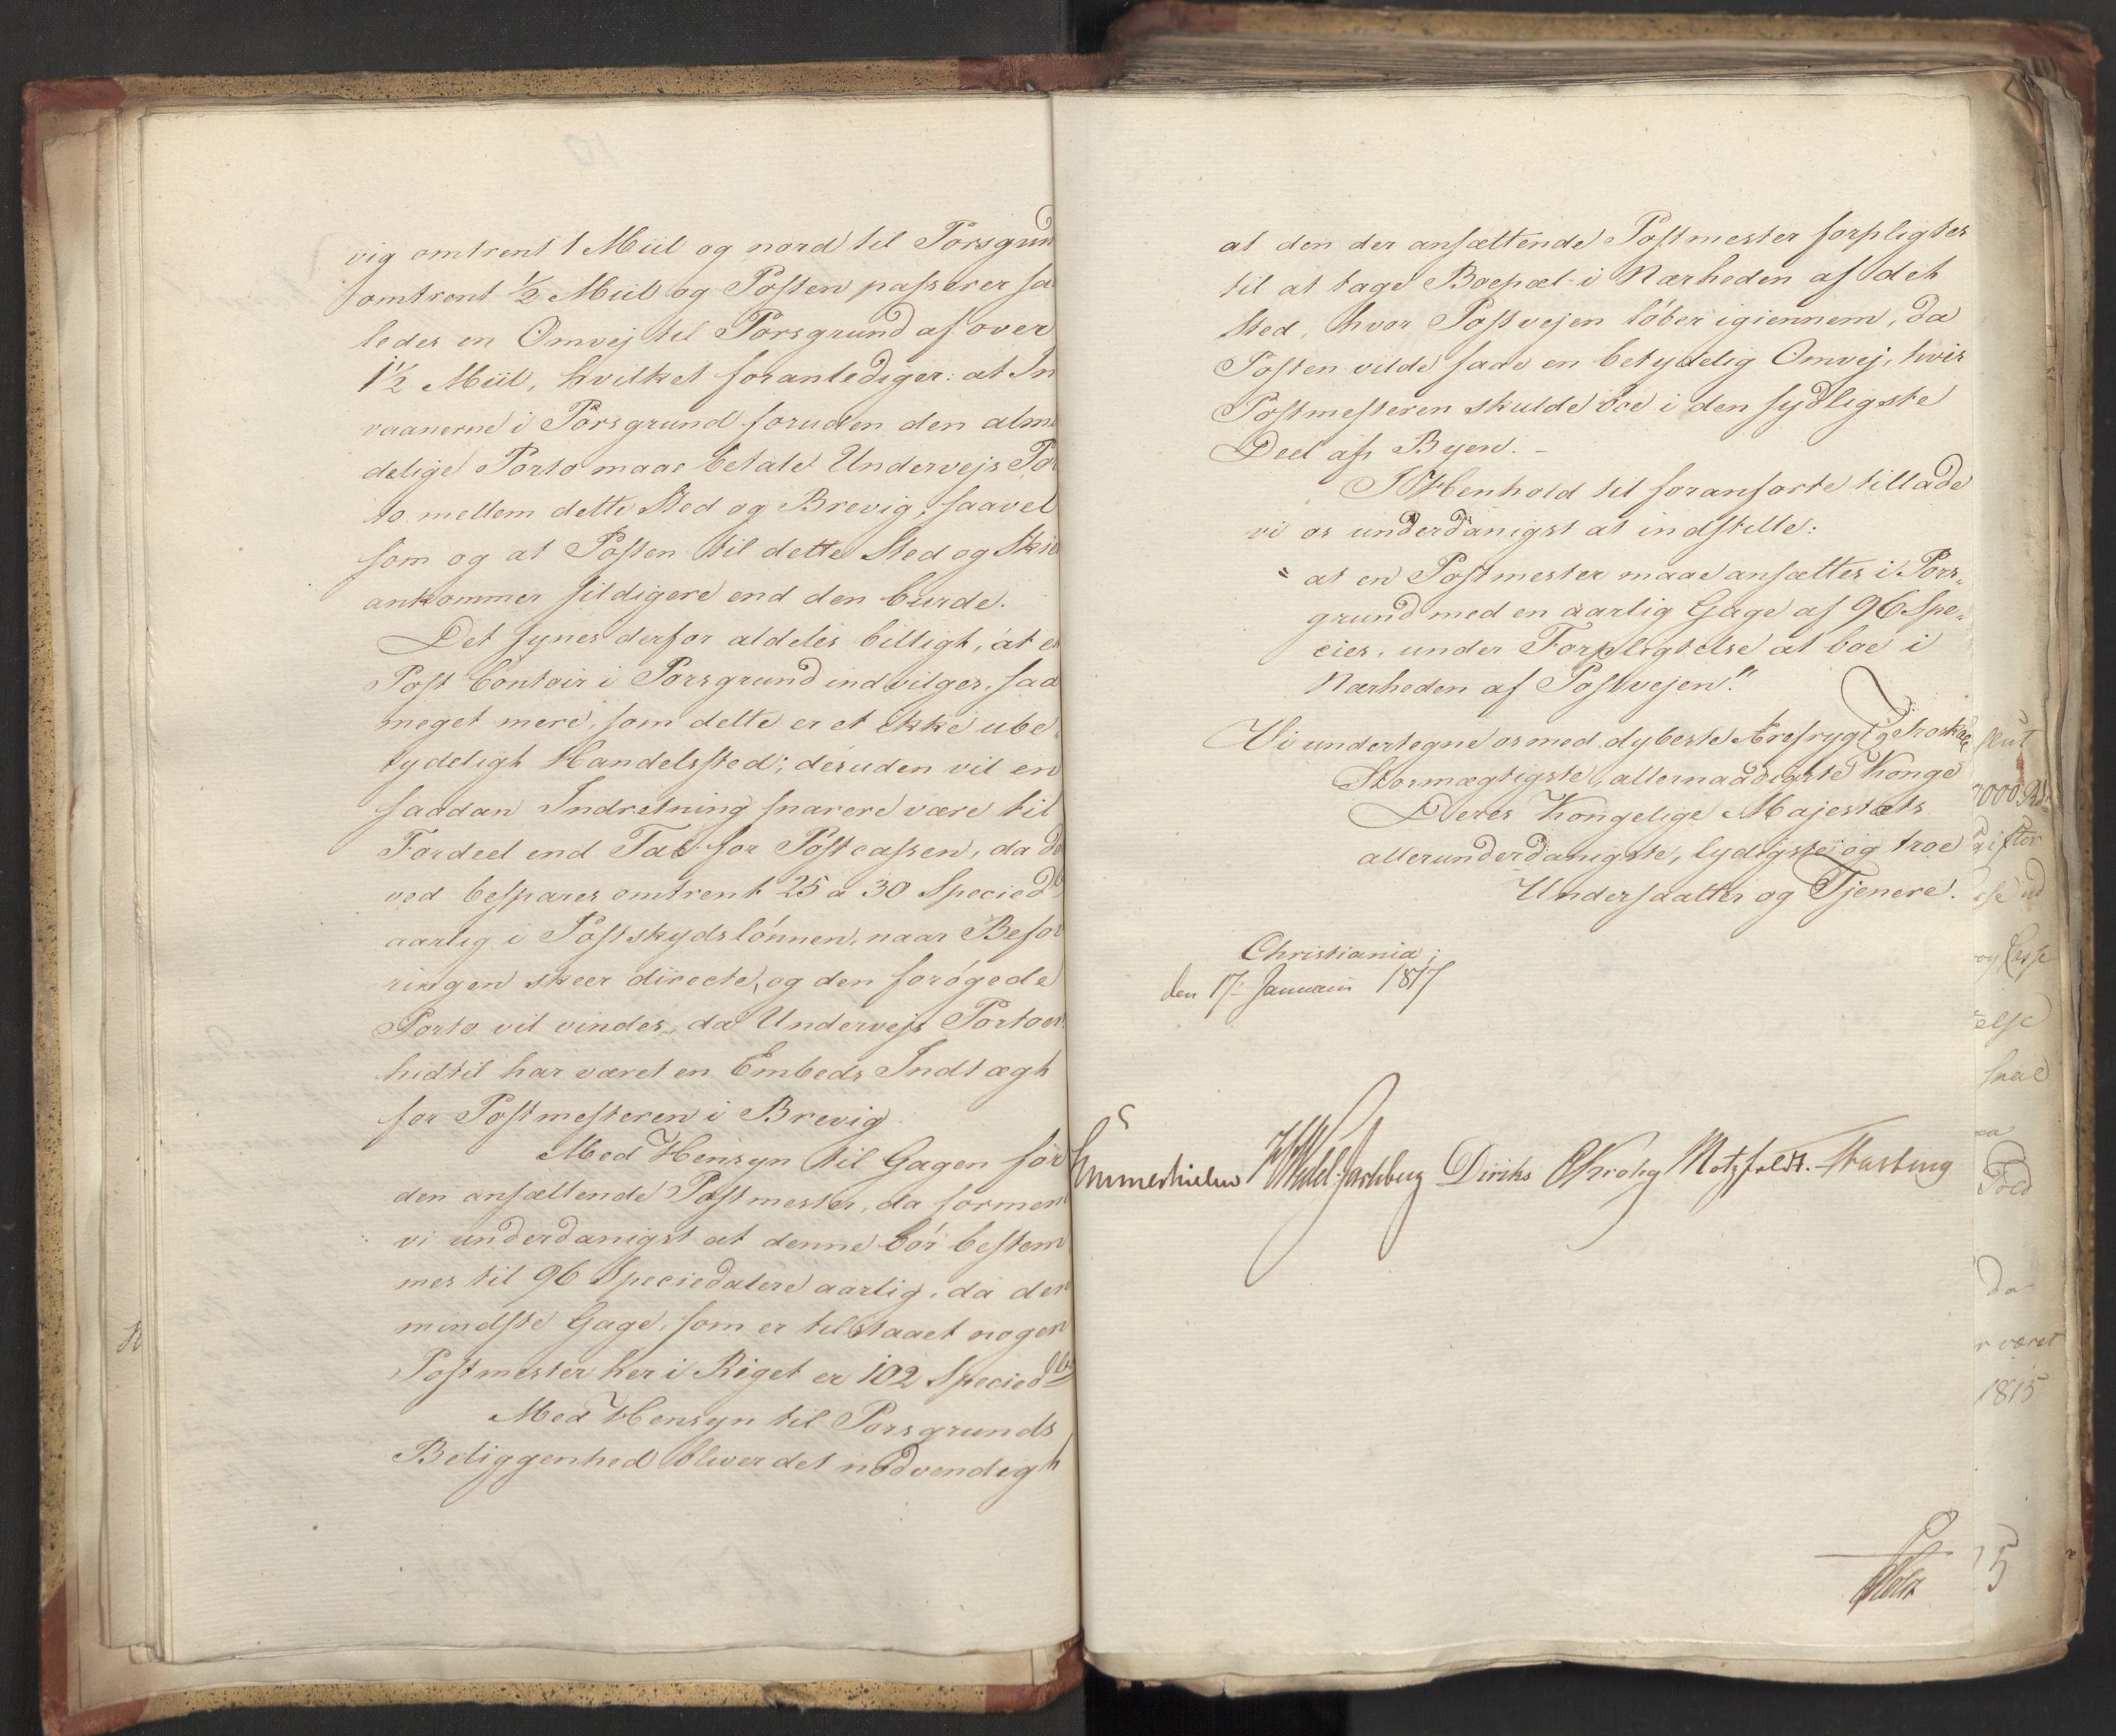 vig omtrent 1 Miil og nord til Porsgrund
omtrent ½ Miil og Posten passerer saa
ledes en Omvej til Porsgrund af over
1½ Miil, hvilket foranlediger: at In
vaanerne i Porsgrund foruden den almi
delige Porto maae betale Undervejs Por
to mellem dette Sted og Brevig, saavel
som og at Posten til dette Sted og Skie
ankommer sildigere end den burde.
Det synes derfor aldeles billigt, at et
Post Contoir i Porsgrund indvilges, saa
meget mere, som dette er et ikke ube
tydeligt Handelssted; desuden vil en
saadan Indretning snarere være til
Fordeel end Tab for Postcassen, da der
ved bespares omtrent 25 a 30 Speciedlr
aarlig i Postskydslønnen, naar Befor
ringen skeer directe, og den forøgede
Porto vil vindes, da Undervejs Portoen
hidtil har været en Embeds Indtægt
for Postmesteren i Brevig
Med Hensyn til Gagen for
den ansættende Postmester, da formene
vi underdanigst at denne bör bestem
mes til 96 Speciedalere aarlig, da den
mindste Gage, som er tilstaaet nogen
Postmester her i Riget er 102 Speciedlr
Med Hensyn til Porsgrunds
Beliggenhed bliver det nødvendigt
at den der ansættende Postmester forpligtes
til at tage Boepæl i Nærheden af det
Sted, hvor Postvejen löber igiennem, da
Posten vilde faae en betydelig Omvej, hvis
Postmesteren skulde boe i den sydligste
Deel af Byen. -
I Henhold til foranførte tillade
vi os underdanigst at indstille:
" at en Postmester maae ansættes i Pors-
grund med en aarlig Gage af 96 Spe-
cies, under Forpligtelse at boe i
Nærheden af Postvejen."
Vi undertegne os med dybeste Ærefrygt og Troskab
Stormægtigste, allernaadigste Konge
Deres Kongelige Majestæts
allerunderdanigste, lydigste og troe
Undersaatter og Tjenere.
Christiania;
den 17. Januarii 1817
Sommerhielm HWedel-Jarlsberg Diriks CKrohg Motzfeldt. Fasting
Holst
1815